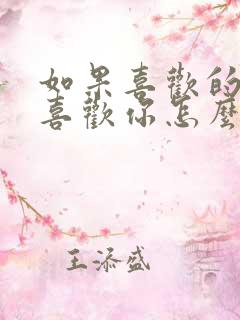 如果喜歡的
喜歡你怎麼
王添盛